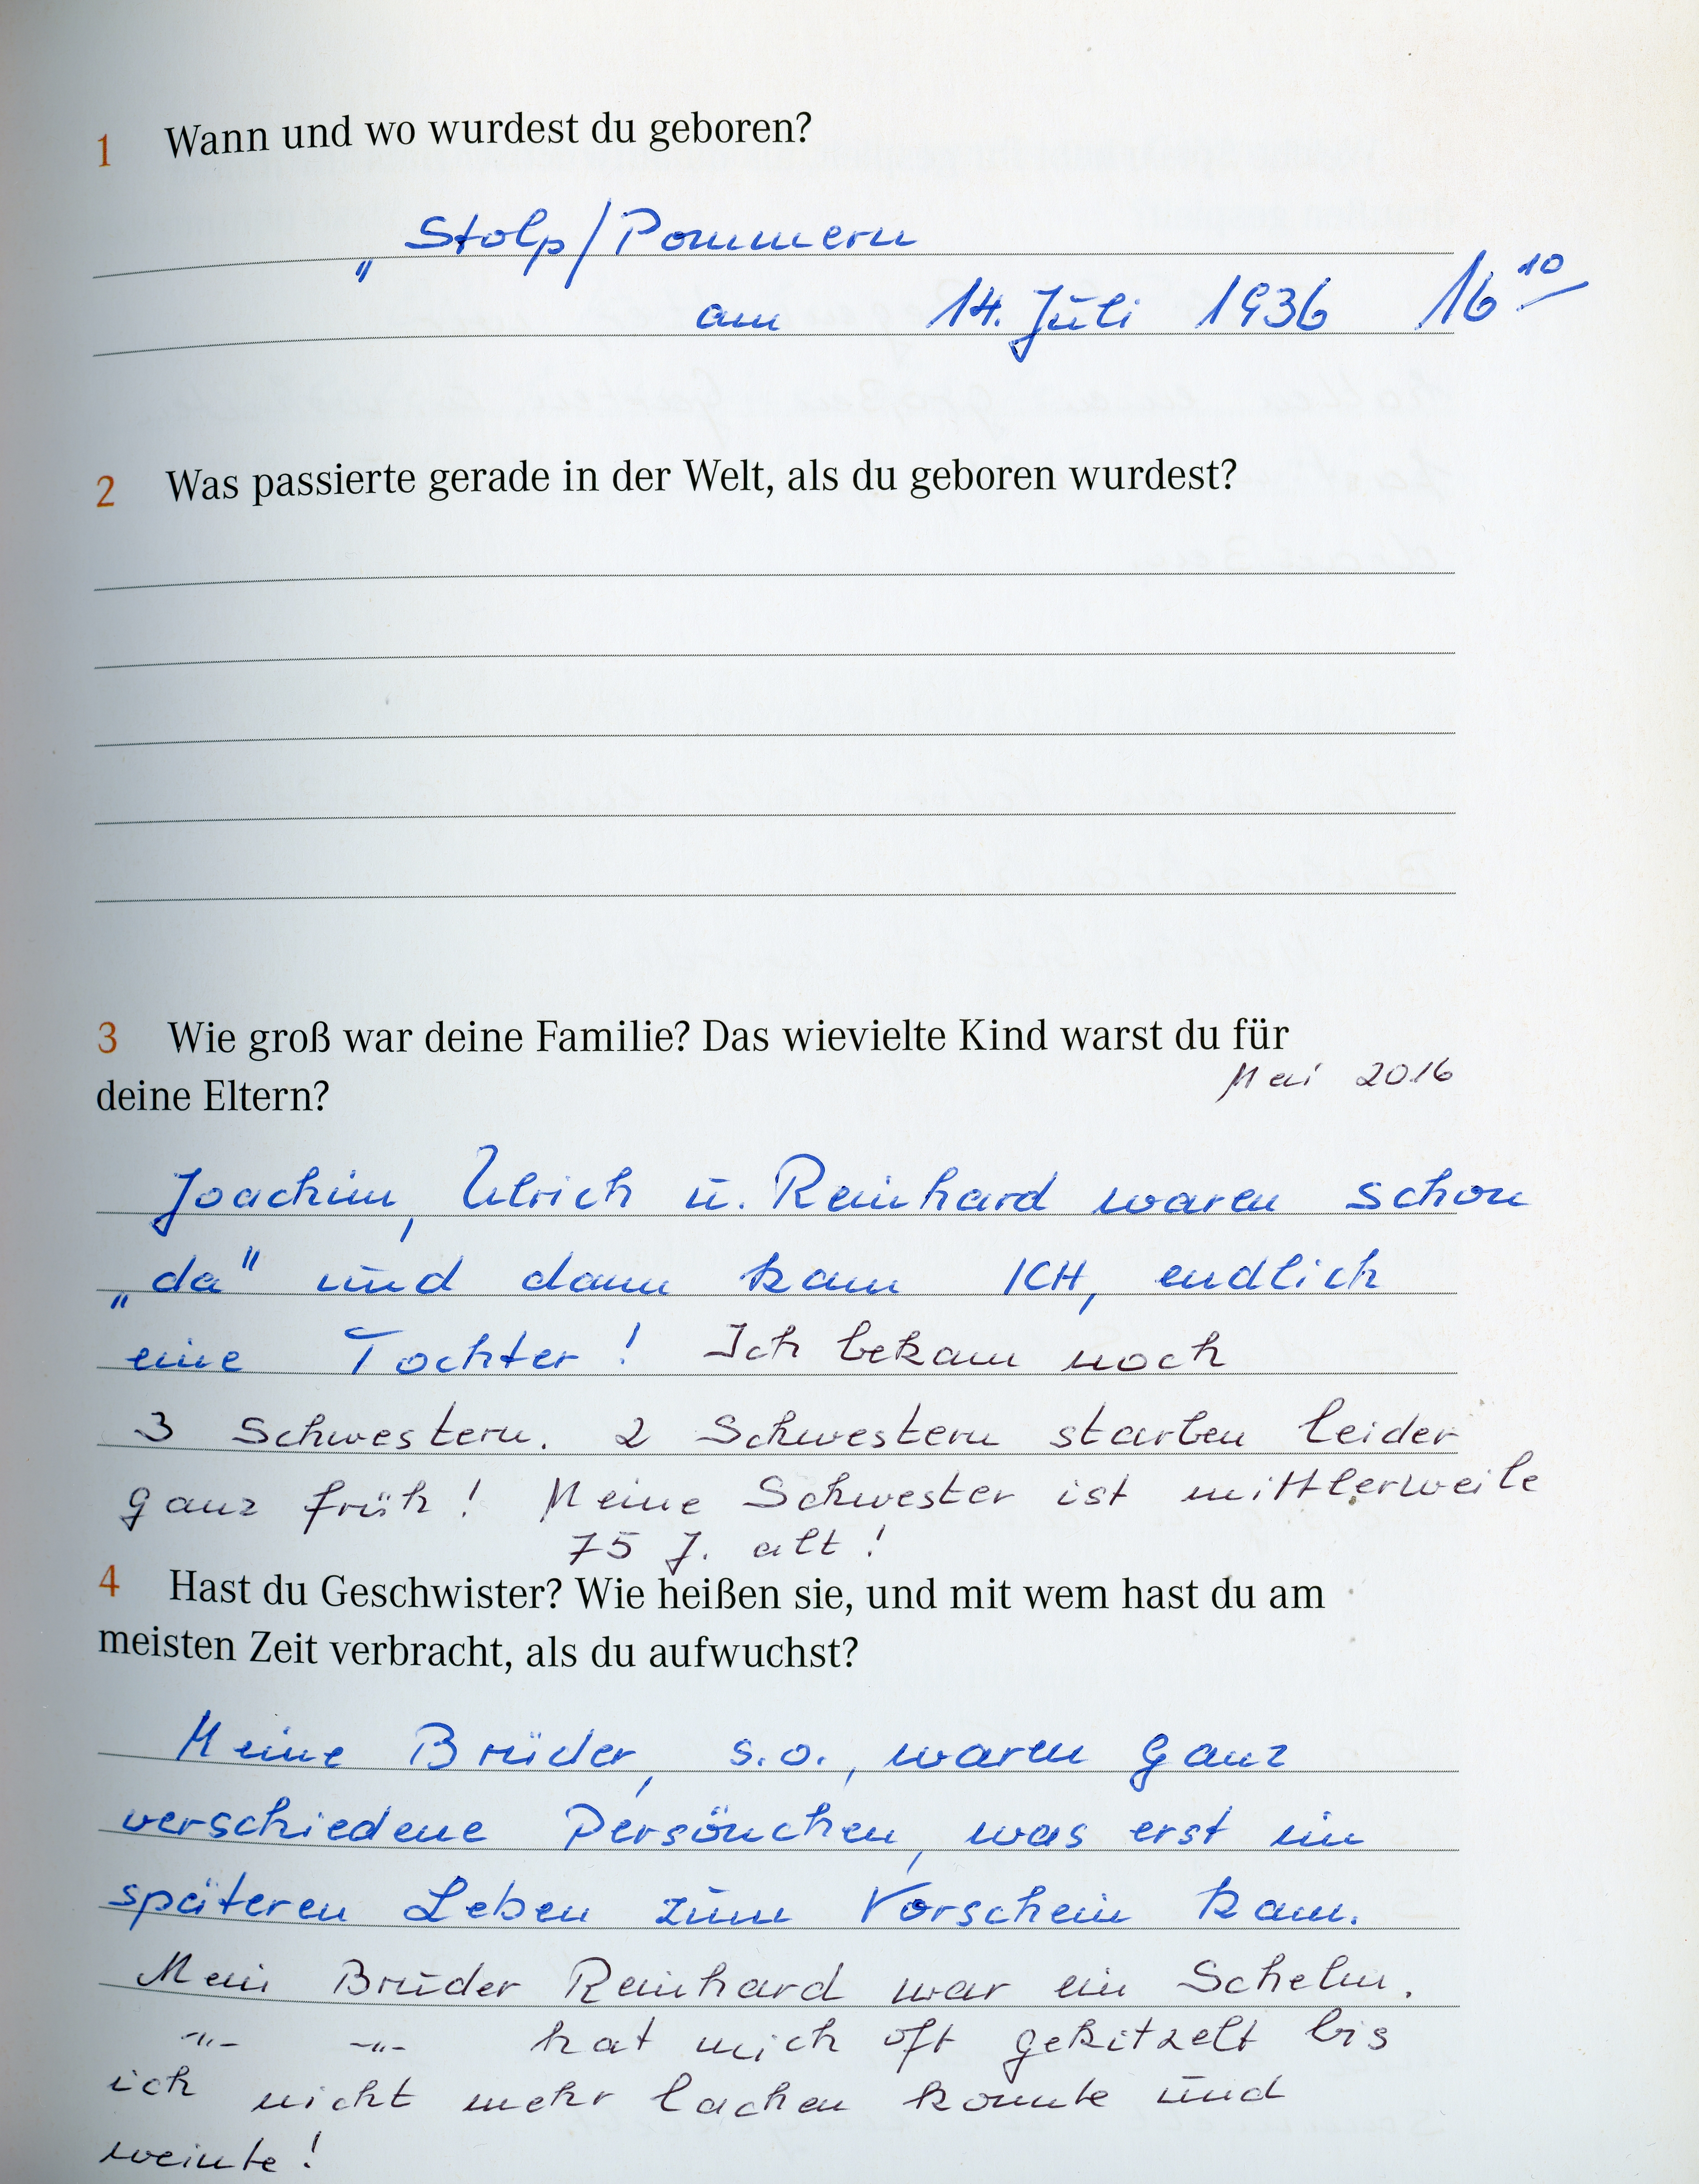 1 Wann und wo wurdest du geboren?
„ Stolp/Pommern
am 14. Juli 1936 16¹⁰
2 Was passierte gerade in der Welt, als du geboren wurdest?
3 Wie groß war deine Familie? Das wievielte Kind warst du für
deine Eltern?
Mai 2016
Joachim, Ulrich u. Reinhard waren schon
„da" und dann kam ICH, endlich
eine Tochter! Ich bekam noch
3 Schwestern. 2 Schwestern starben leider
ganz früh! Meine Schwester ist mittlerweile
75 J. alt!
4 Hast du Geschwister? Wie heißen sie, und mit wem hast du am
meisten Zeit verbracht, als du aufwuchst?
Meine Brüder, s.o., waren ganz
verschiedene Persönchen, was erst im
späteren Leben zum Vorschein kam.
Mein Bruder Reinhard war ein Schelm.
-"- -"- hat mich oft gekitzelt bis
ich nicht mehr lachen konnte und
weinte!